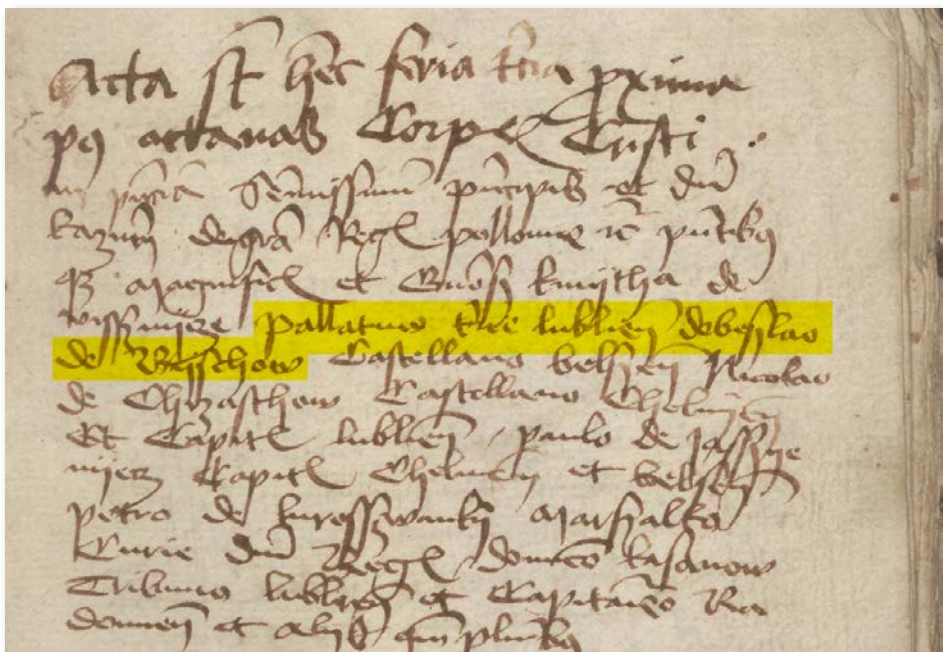 Acta st hec feria tcia proxima
po octavas Corpis Cristi
in pncia Serenissimi pncipis et dni
kazimiri deigra Regis pollonie et pntibus
et magnificis et Gnosis kmytha de
vissnycze pallatino tre lublien dobesslao
de Bysschow Castellano belsen Nicolao
de Chrzasthow Castellano Chelmen
Et Capit lublien paulo de jassye
nyecz Capit Chelmen et belsen
petro de marsalko
Curie dni Regis domico kasanow
Tribuno lublien et Capitaneo Ra
domien et alys qm plmbus